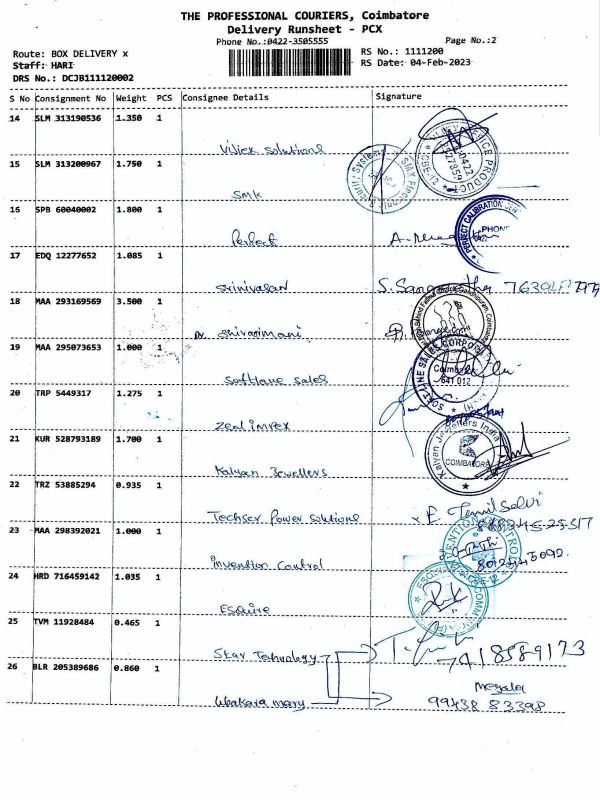 THE PROFESSIONAL COURIERS, Coimbatore
Delivery Runsheet - PCX
Phone No.:0422-3505555 Page No.:2
Route: BOX DELIVERY x RS No.: 1111200
Staff: HARI RS Date: 04-Feb-2023
DRS No.: DCJB111120002
S No Consignment No Weight PCS Consignee Details Signature
14 SLM 313190536 1.350 1
Solutions
15 SLM 313200967 1.750 1
SMK
16 SPB 60040002 1.800 1
Perfect
PERFECT CALIBRATION
PHON
17 EDQ 12277652 1.085 1
Srinivasan
18 MAA 293169569 3.500 1
Dr. Shivasimani
19 MAA 295073653 1.000 1
Softline Sales
SOFTLINE SALES CORPO
Coimba
641 012
20 TRP 5449317 1.275 1
Zeal imrex
21 KUR 528793189 1.700 1
Kalyan Jewellers
Kalyan Jewellers India
COIMBATORE
22 TRZ 53885294 0.935 1
Techser Power Solutions
F. Tamil Selvi
23 MAA 298392021 1.000 1
Invention Control
24 HRD 716459142 1.035 1
Esquire
25 TVM 11928484 0.465 1
Star Technology
7418589173
26 BLR 205389686 0.860 1
mary
99438 83398